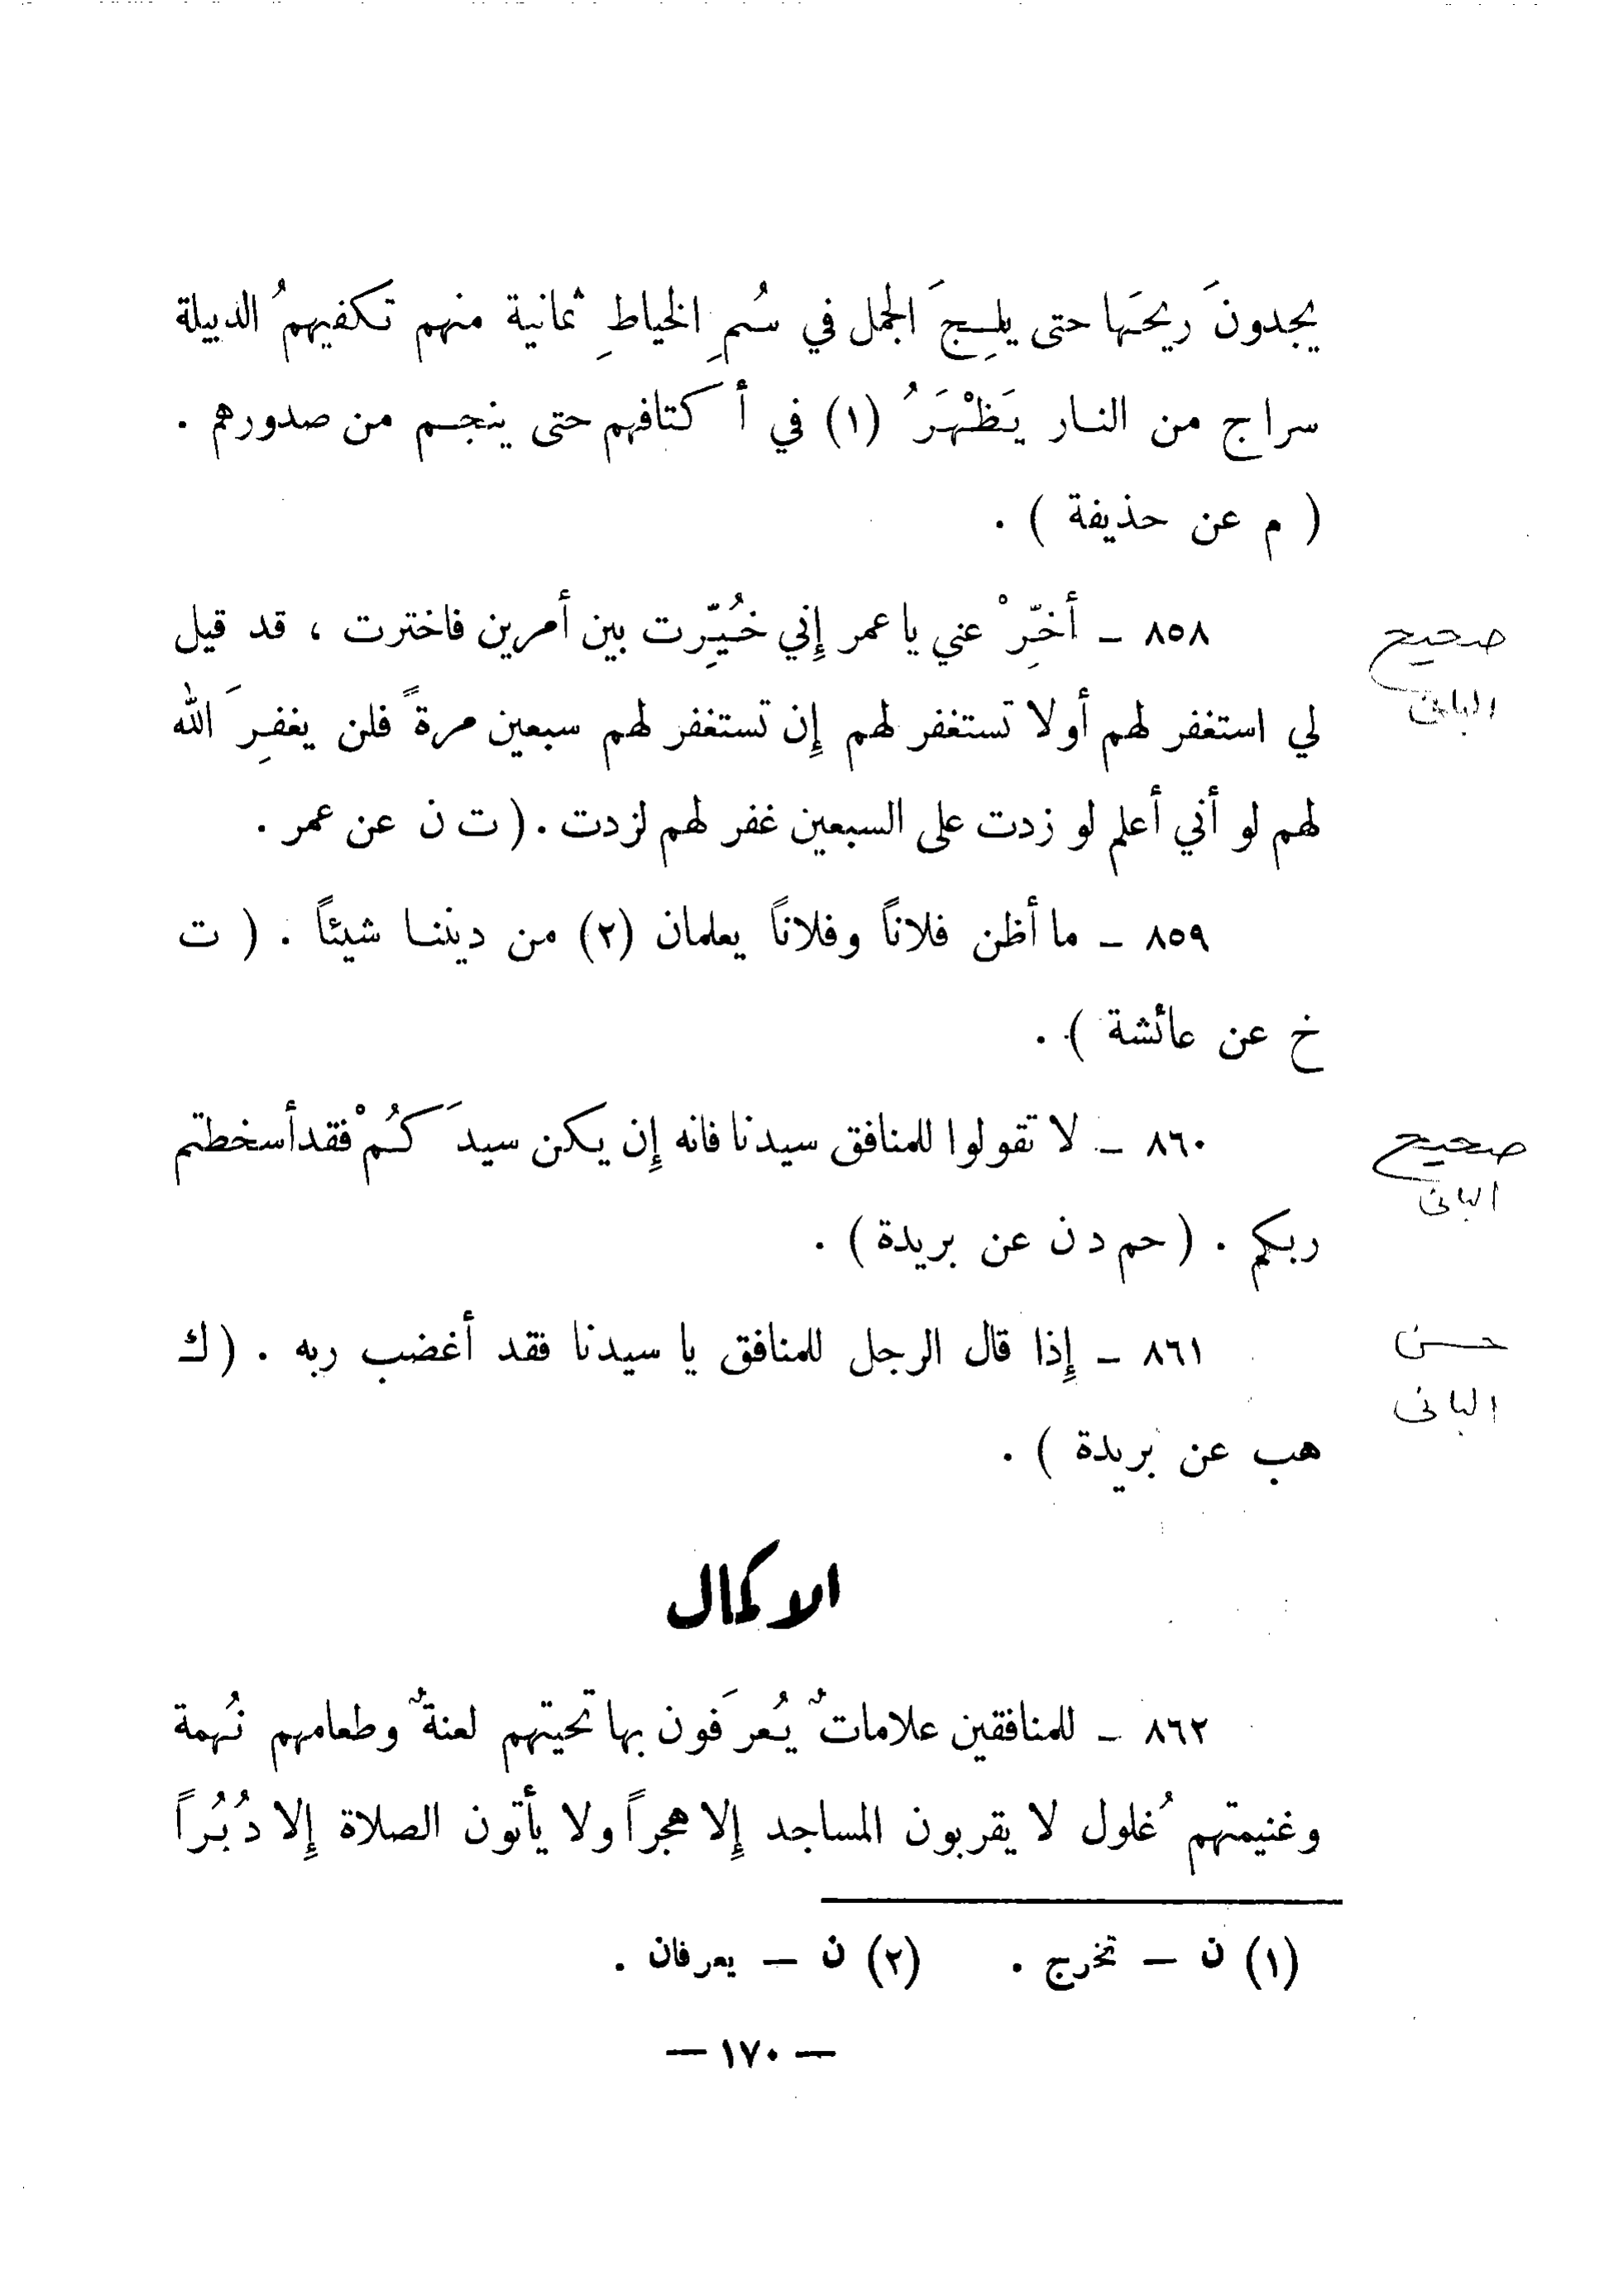 يجدونَ ريحَها حتى يلِجَ الجمل في سُمِ الخياطِ ثمانية منهم تكفيهمُ الدبيلة
سراج من النار يَظْهَرُ (١) في أكتافهم حتى ينجم من صدورهم .
( م عن حذيفة ) .
٨٥٨ ـ أخِّرْ عني يا عمر إِني خُيِّرت بين أمرين فاخترت ، قد قيل
صحيح
لي استغفر لهم أولا تستغفر لهم إِن تستغفر لهم سبعين مرةً فلن يغفِرَ الله
البانى
لهم لو أني أعلم لو زدت على السبعين غفر لهم لزدت . ( ت ن عن عمر .
٨٥٩ ـ ما أظن فلاناً وفلاناً يعلمان (٢) من ديننا شيئاً . ( ت
خ عن عائشة ) .
٨٦٠ ـ لا تقولوا للمنافق سيدنا فانه إِن يكن سيدَكُمْ فقد أسخطتم
صحيح
البانى
ربكم . ( حم د ن عن بريدة ) .
٨٦١ ـ إِذا قال الرجل للمنافق يا سيدنا فقد أغضب ربه . ( ك
حسن
البانى
هب عن بريدة ) .
الاكمال
٨٦٢ ـ للمنافقين علاماتٌ يُعرَفون بها تحيتهم لعنةٌ وطعامهم نُهمة
وغنيمتهم غُلول لا يقربون المساجد إِلا هجراً ولا يأتون الصلاة إِلا دُبُراً
(١) ن — تخرج . (٢) ن — يعرفان .
— ١٧٠ —